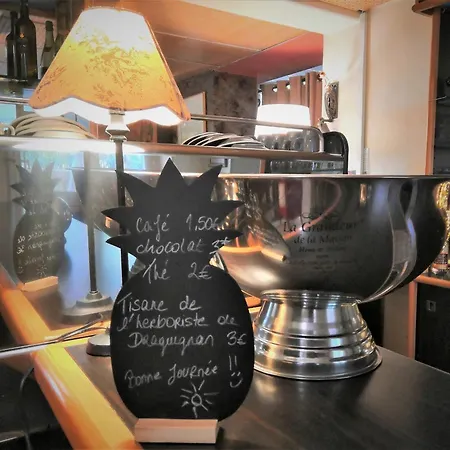 Café 1,50€
chocolat 2€
Thé 2€
Tisane de
l'herboriste de
Draguignan 3€
Bonne Journée !!
La Grandeur
de la Marque